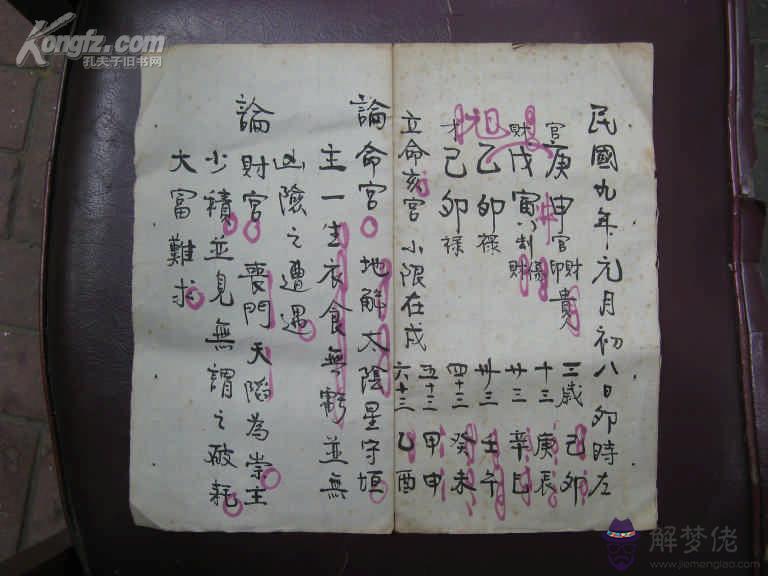 民國九年元月初八日卯時左
官 庚申 官印 財 貴
財 戊寅 刦 財 傷
乙卯 祿
才 己卯 祿
三歲 己卯
十三 庚辰
廿三 辛巳
卅三 壬午
四十三 癸未
五十三 甲申
六十三 乙酉
立命亥宮 小限在戌
論命宮 地解太陰星守垣
主一生衣食無虧並無
凶險之遭遇
論財宮 喪門天陷為祟主
少積並見無謂之破耗
大富難求
Kongfz.com
孔夫子旧书网
解梦佬
www.jiemenglao.com